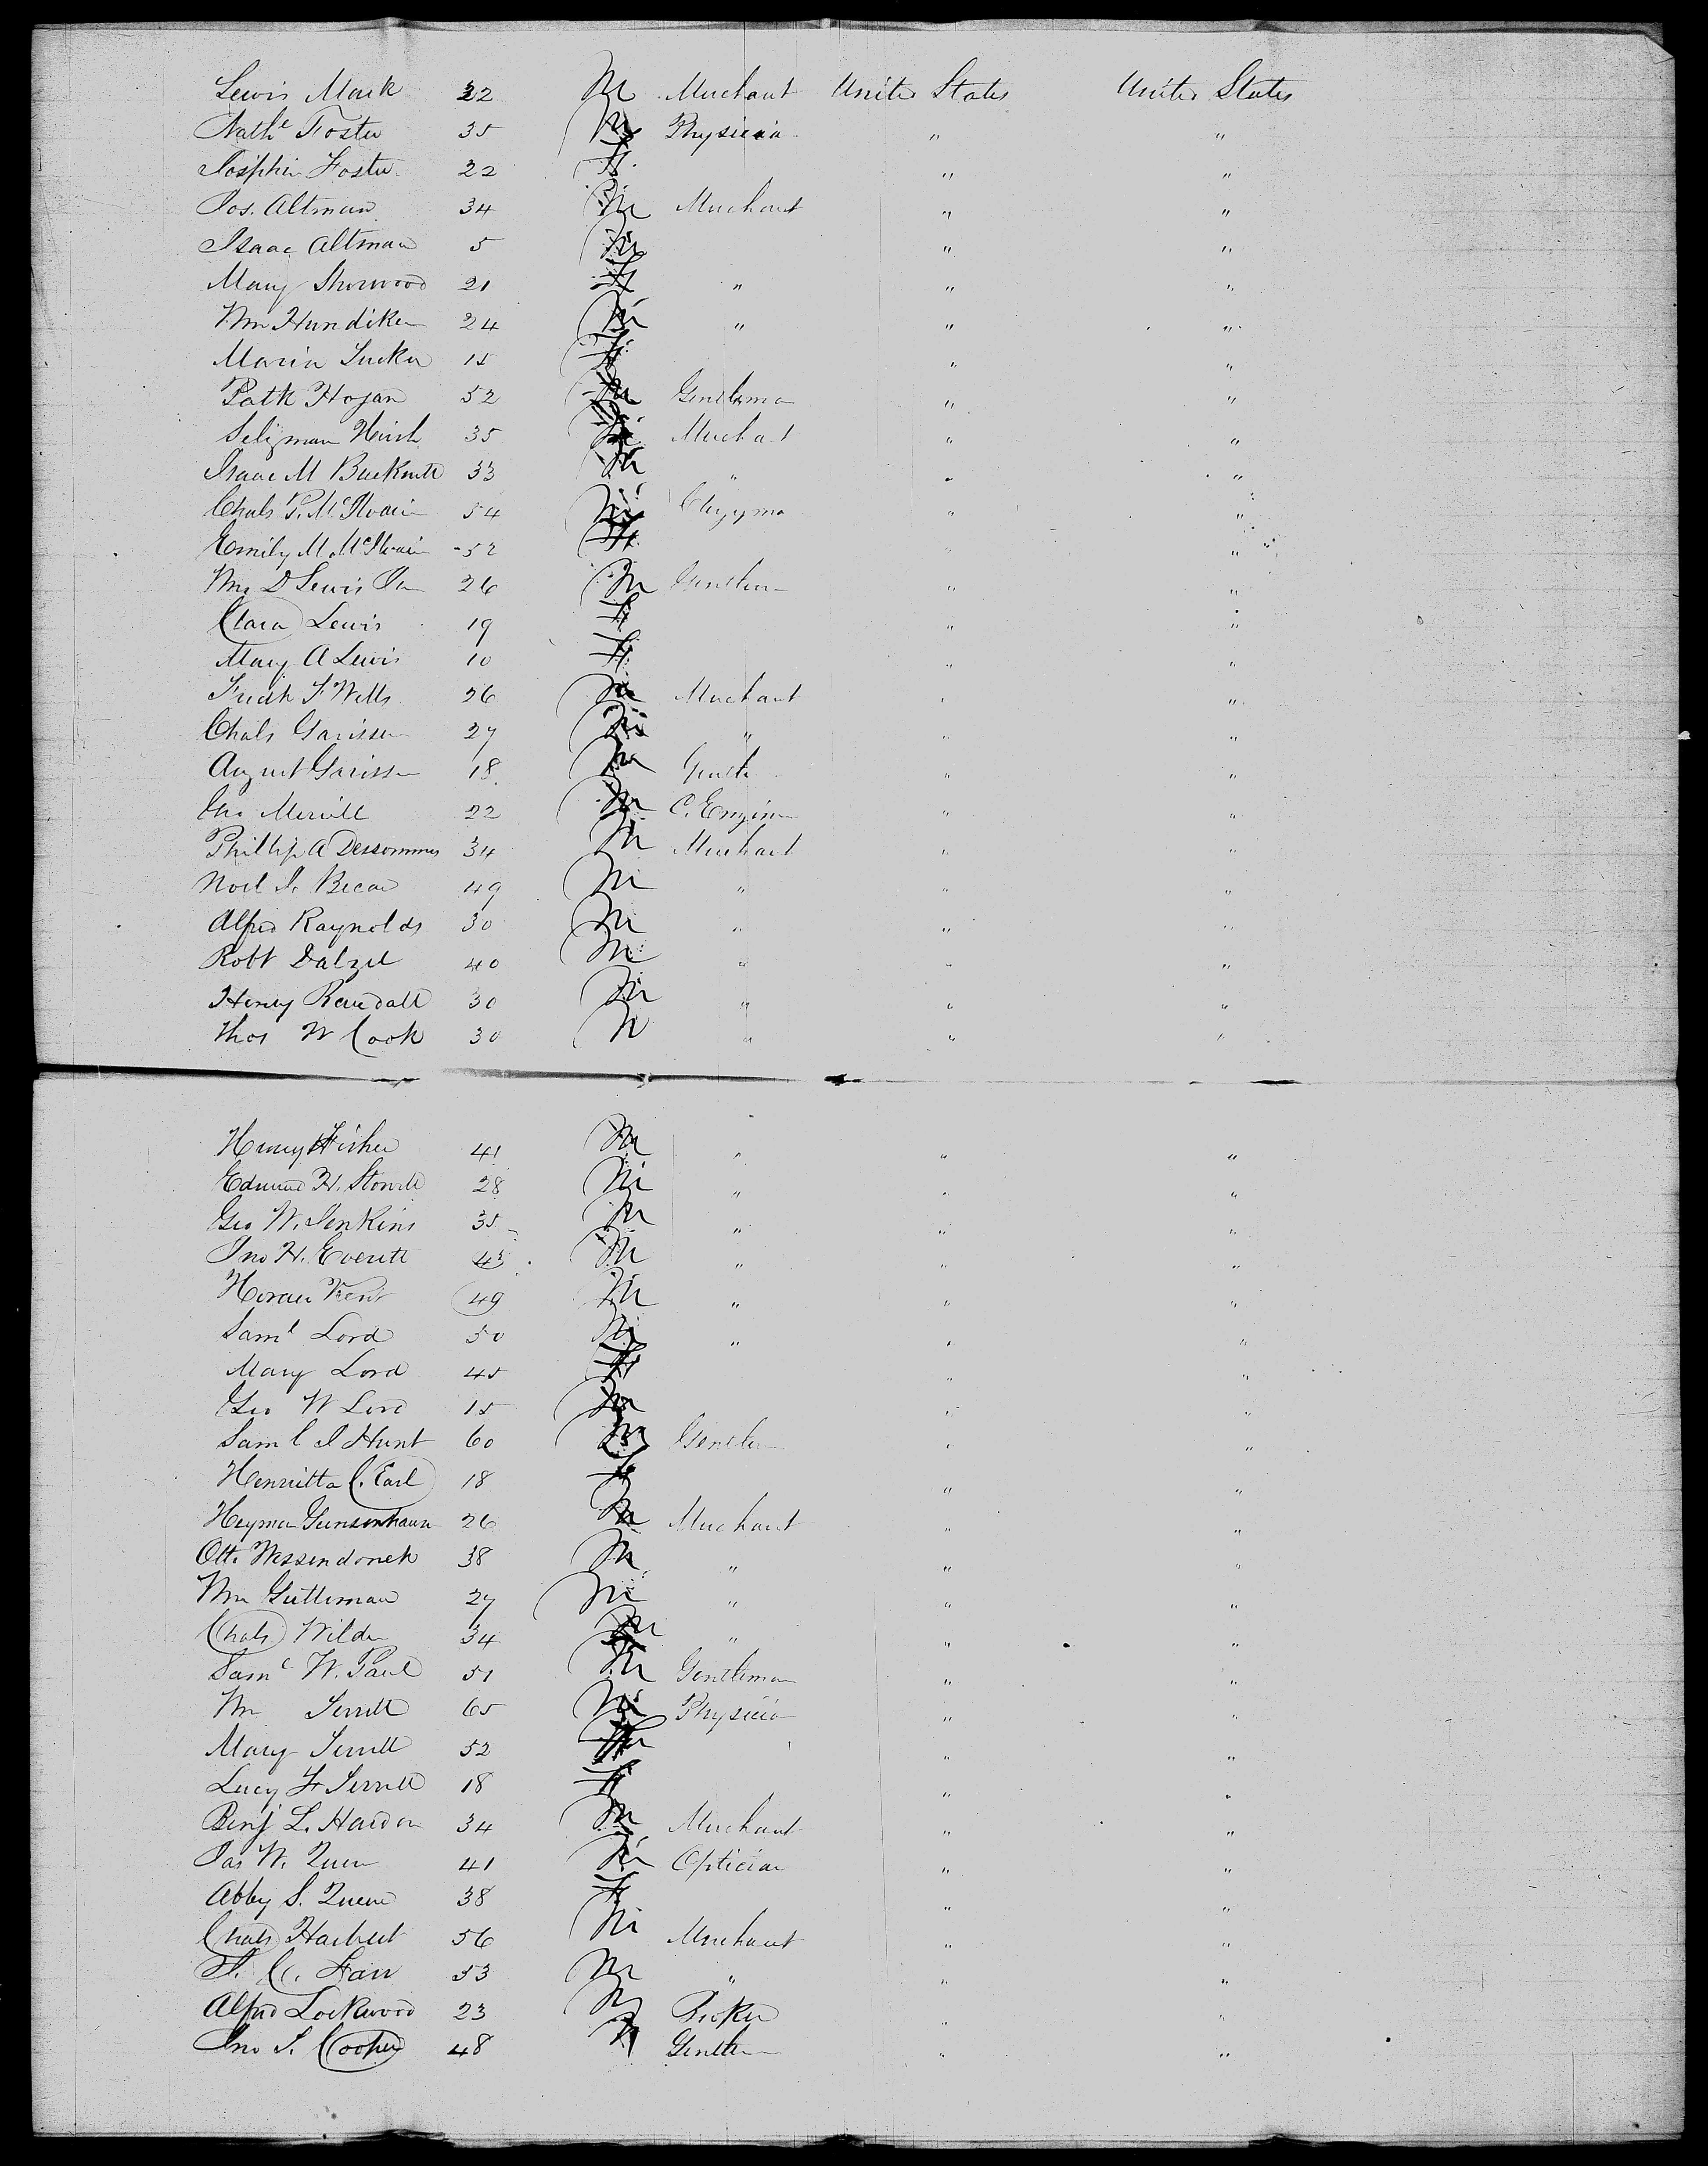 Lewis Mark 22 M Merchant United States United States
Nathl Foster 35 M Physician " "
Josphin Foster 22 F " "
Jos. Altman 34 M Merchant " "
Isaac Altman 5 M " "
Mary Sherwood 21 F " " "
Wm Hundiken 24 M " " "
Maria Tucker 15 F " "
Patk Hogan 52 M Gentleman " "
Seligman Hirsh 35 M Merchant " "
Isaac M Bucknell 33 M " " "
Chals P. McIlvain 54 M Clergyman " "
Emily M. McIlvain 52 F " "
Wm D Lewis Jn 26 M Gentlem " "
Clara Lewis 19 F " "
Mary A Lewis 10 F " "
Fredk F. Wells 26 M Merchant " "
Chals Garissen 27 M " " "
August Garissen 18 M Gentle " "
Geo Merrill 22 M C. Engineer " "
Phillip A Dessommes 34 M Merchant " "
Noel J. Becar 49 M " " "
Alfred Raynolds 30 M " " "
Robt Dalzel 40 M " " "
Henry Randall 30 M " " "
Thos W Cook 30 M " " "
Henry Fisher 41 M " " "
Edmund H. Stowell 28 M " " "
Geo W. Jenkins 35 M " " "
Jno H. Everett 43 M " " "
Horace Kent 49 M " " "
Saml Lord 50 M " " "
Mary Lord 45 F " "
Geo W Lord 15 M " "
Saml I Hunt 60 M Gentlem " "
Henrietta C. Earl 18 F " "
Heyman Gunsenhaun 26 M Merchant " "
Otto Wessendonck 38 M " " "
Wm Gutteman 27 M " " "
Chals Wilder 34 M " " "
Saml W. Paul 51 M Gentleman " "
Wm Terrell 65 M Physician " "
Mary Terrell 52 F " "
Lucy F Terrell 18 F " "
Benj L. Hardon 34 M Merchant " "
Jas W. Queen 41 M Optician " "
Abby S. Queen 38 F " "
Chals Harbert 56 M Merchant " "
C. Farr 53 M " " "
Alfred Lockwood 23 M Broker " "
Jno S. Cooper 48 M Gentlem " "